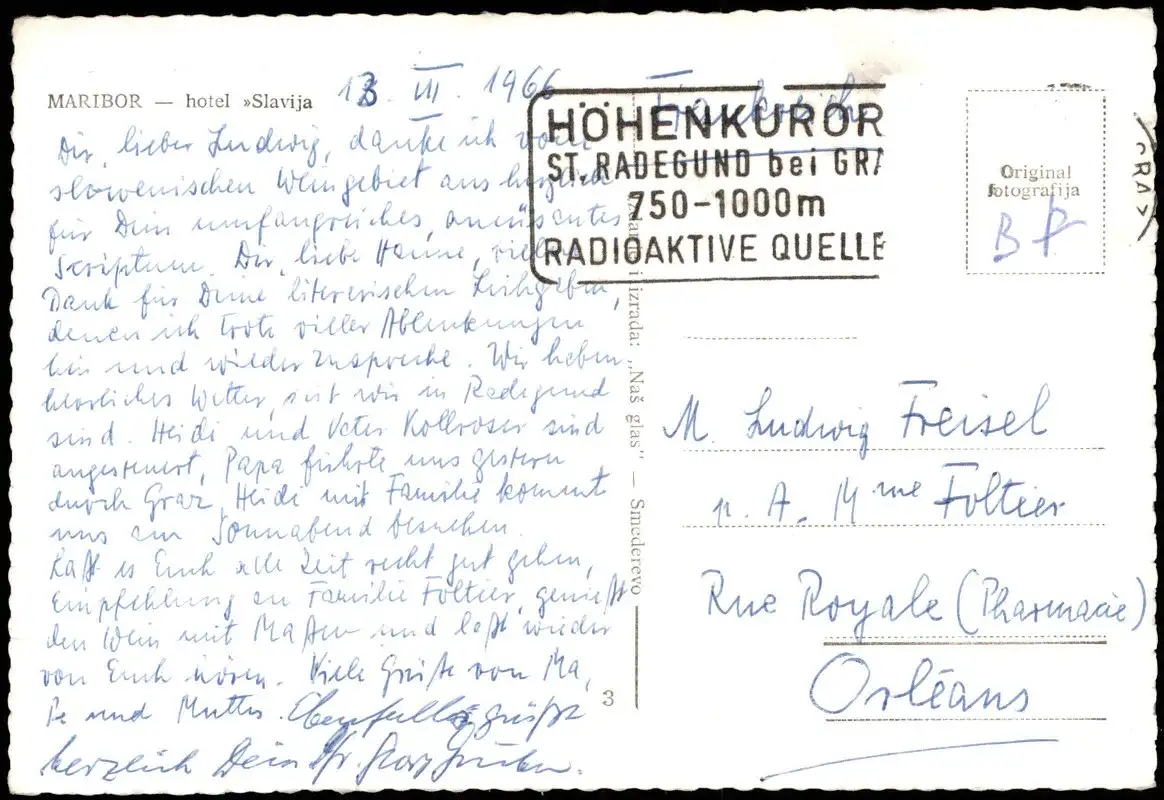 MARIBOR — hotel »Slavija
13. III. 1966
Dir, lieber Ludwig, danke ich vom
slowenischen Weingebiet aus herzlich
für Dein umfangreiches, amüsantes
Scriptum. Dir, liebe Hanne, vielen
Dank für Deine literarischen Leihgaben,
denen ich trotz vieler Ablenkungen
hin und wieder zuspreche. Wir haben
herrliches Wetter, seit wir in Radegund
sind. Heidi und Vater Kollroser sind
angesteuert, Papa führte uns gestern
durch Graz, Heidi mit Familie kommt
uns am Sonnabend besuchen.
Laßt es Euch alle Zeit recht gut gehen,
Empfehlung an Familie Foltier, genießt
den Wein mit Maßen und laßt wieder
von Euch hören. Viele Grüße von Ma,
Pa und Mutter. Ebenfalls grüßt
herzlich Dein
HÖHENKUROR
ST. RADEGUND bei GRA
750-1000m
RADIOAKTIVE QUELLE
Frankreich
Original
fotografija
BP
GRAZ
i izrada: „Naš glas" — Smederevo
3
M. Ludwig Freisel
p. A. Mme Foltier
Rue Royale (Pharmacie)
Orléans